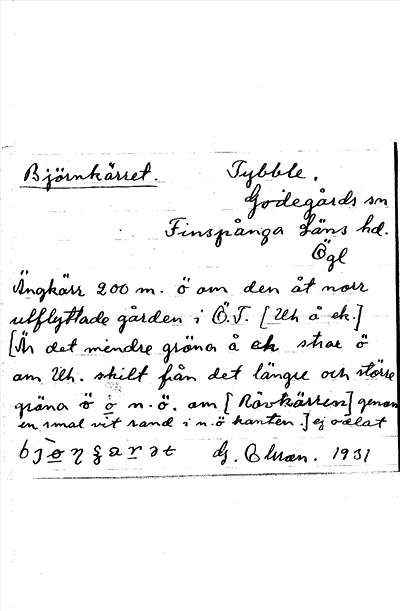 Björnkärret. Tybble.
Godegårds sn
Finspånga läns hd.
Ögl
Ängkärr 200 m. ö om den åt norr
utflyttade gården i Ö.T. [Uh å ek.]
[Är det mindre gröna å ek strax ö
om Uh. skilt från det längre och större
gröna ö o n.ö. om [Rävkärren] genom
en smal vit rand i n.ö kanten.] ej odlat
G. 1931